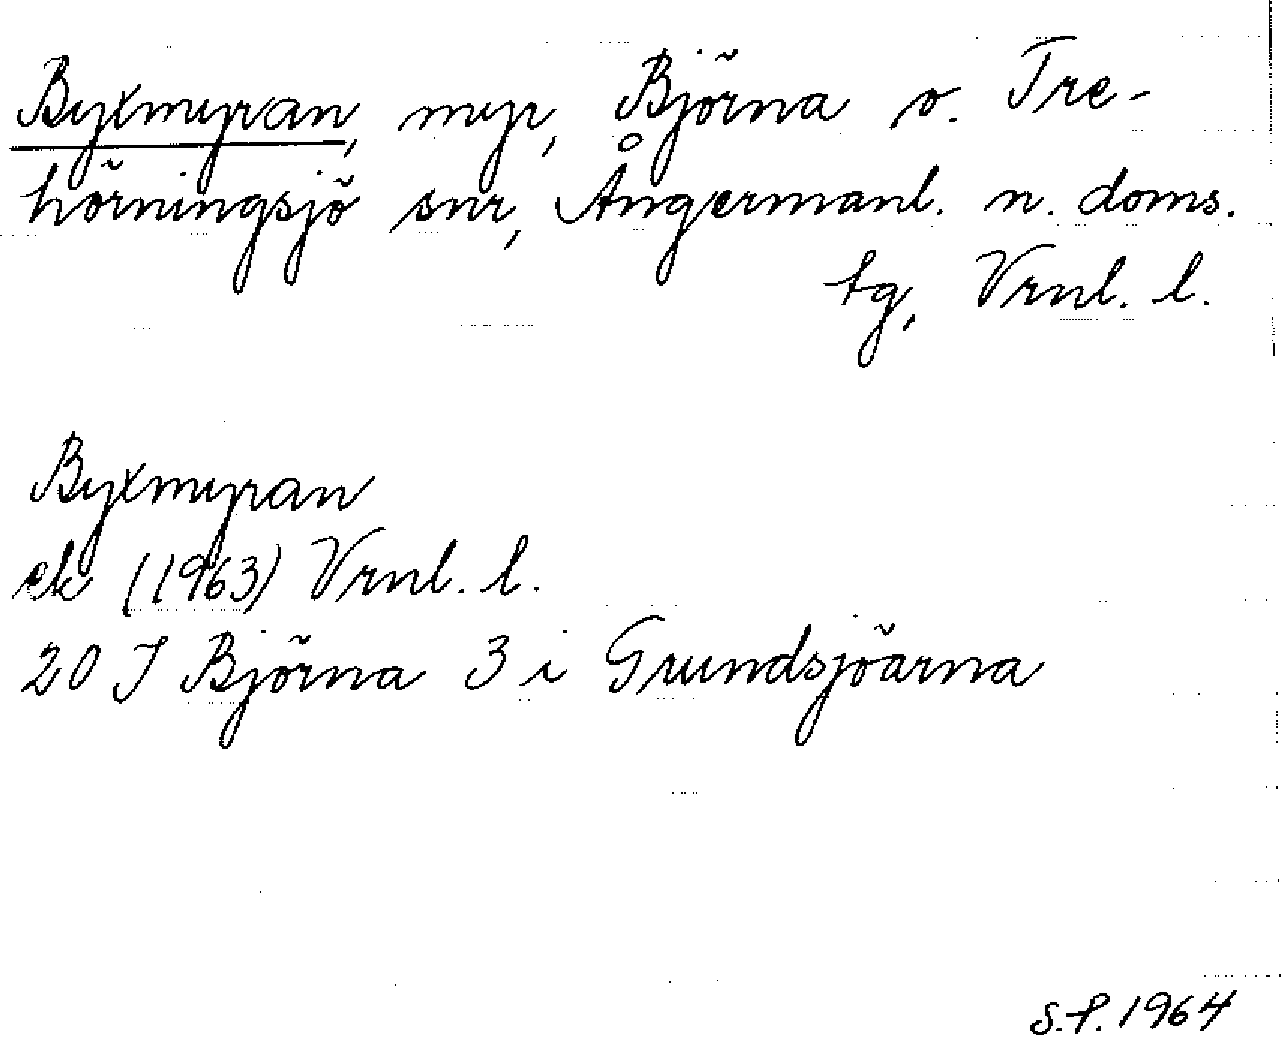 Byxmyran, myr, Björna o. Tre-
hörningsjö snr, Ångermanl. n. doms.
tg, Vrnl. l.
Byxmyran
ek (1963) Vrnl. l.
20 J Björna 3 i Grundsjöarna
S.P. 1964